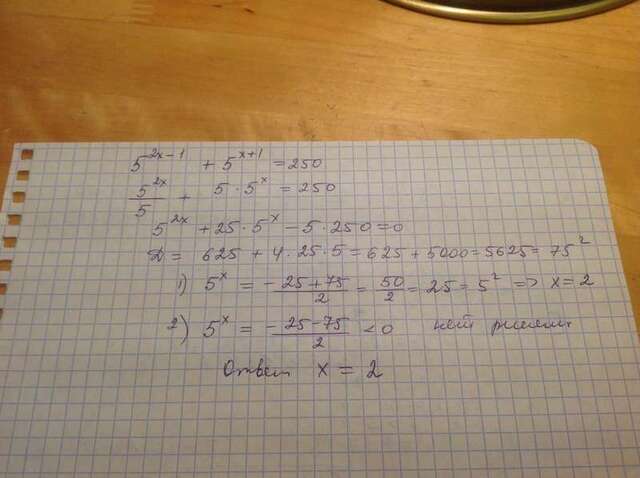 5^{2x-1} + 5^{x+1} = 250
\frac{5^{2x}}{5} + 5 \cdot 5^x = 250
5^{2x} + 25 \cdot 5^x - 5 \cdot 250 = 0
D = 625 + 4 \cdot 25 \cdot 5 = 625 + 5000 = 5625 = 75^2
1) 5^x = \frac{-25+75}{2} = \frac{50}{2} = 25 = 5^2 => x = 2
2) 5^x = \frac{-25-75}{2} < 0 нет решен
Ответ x = 2